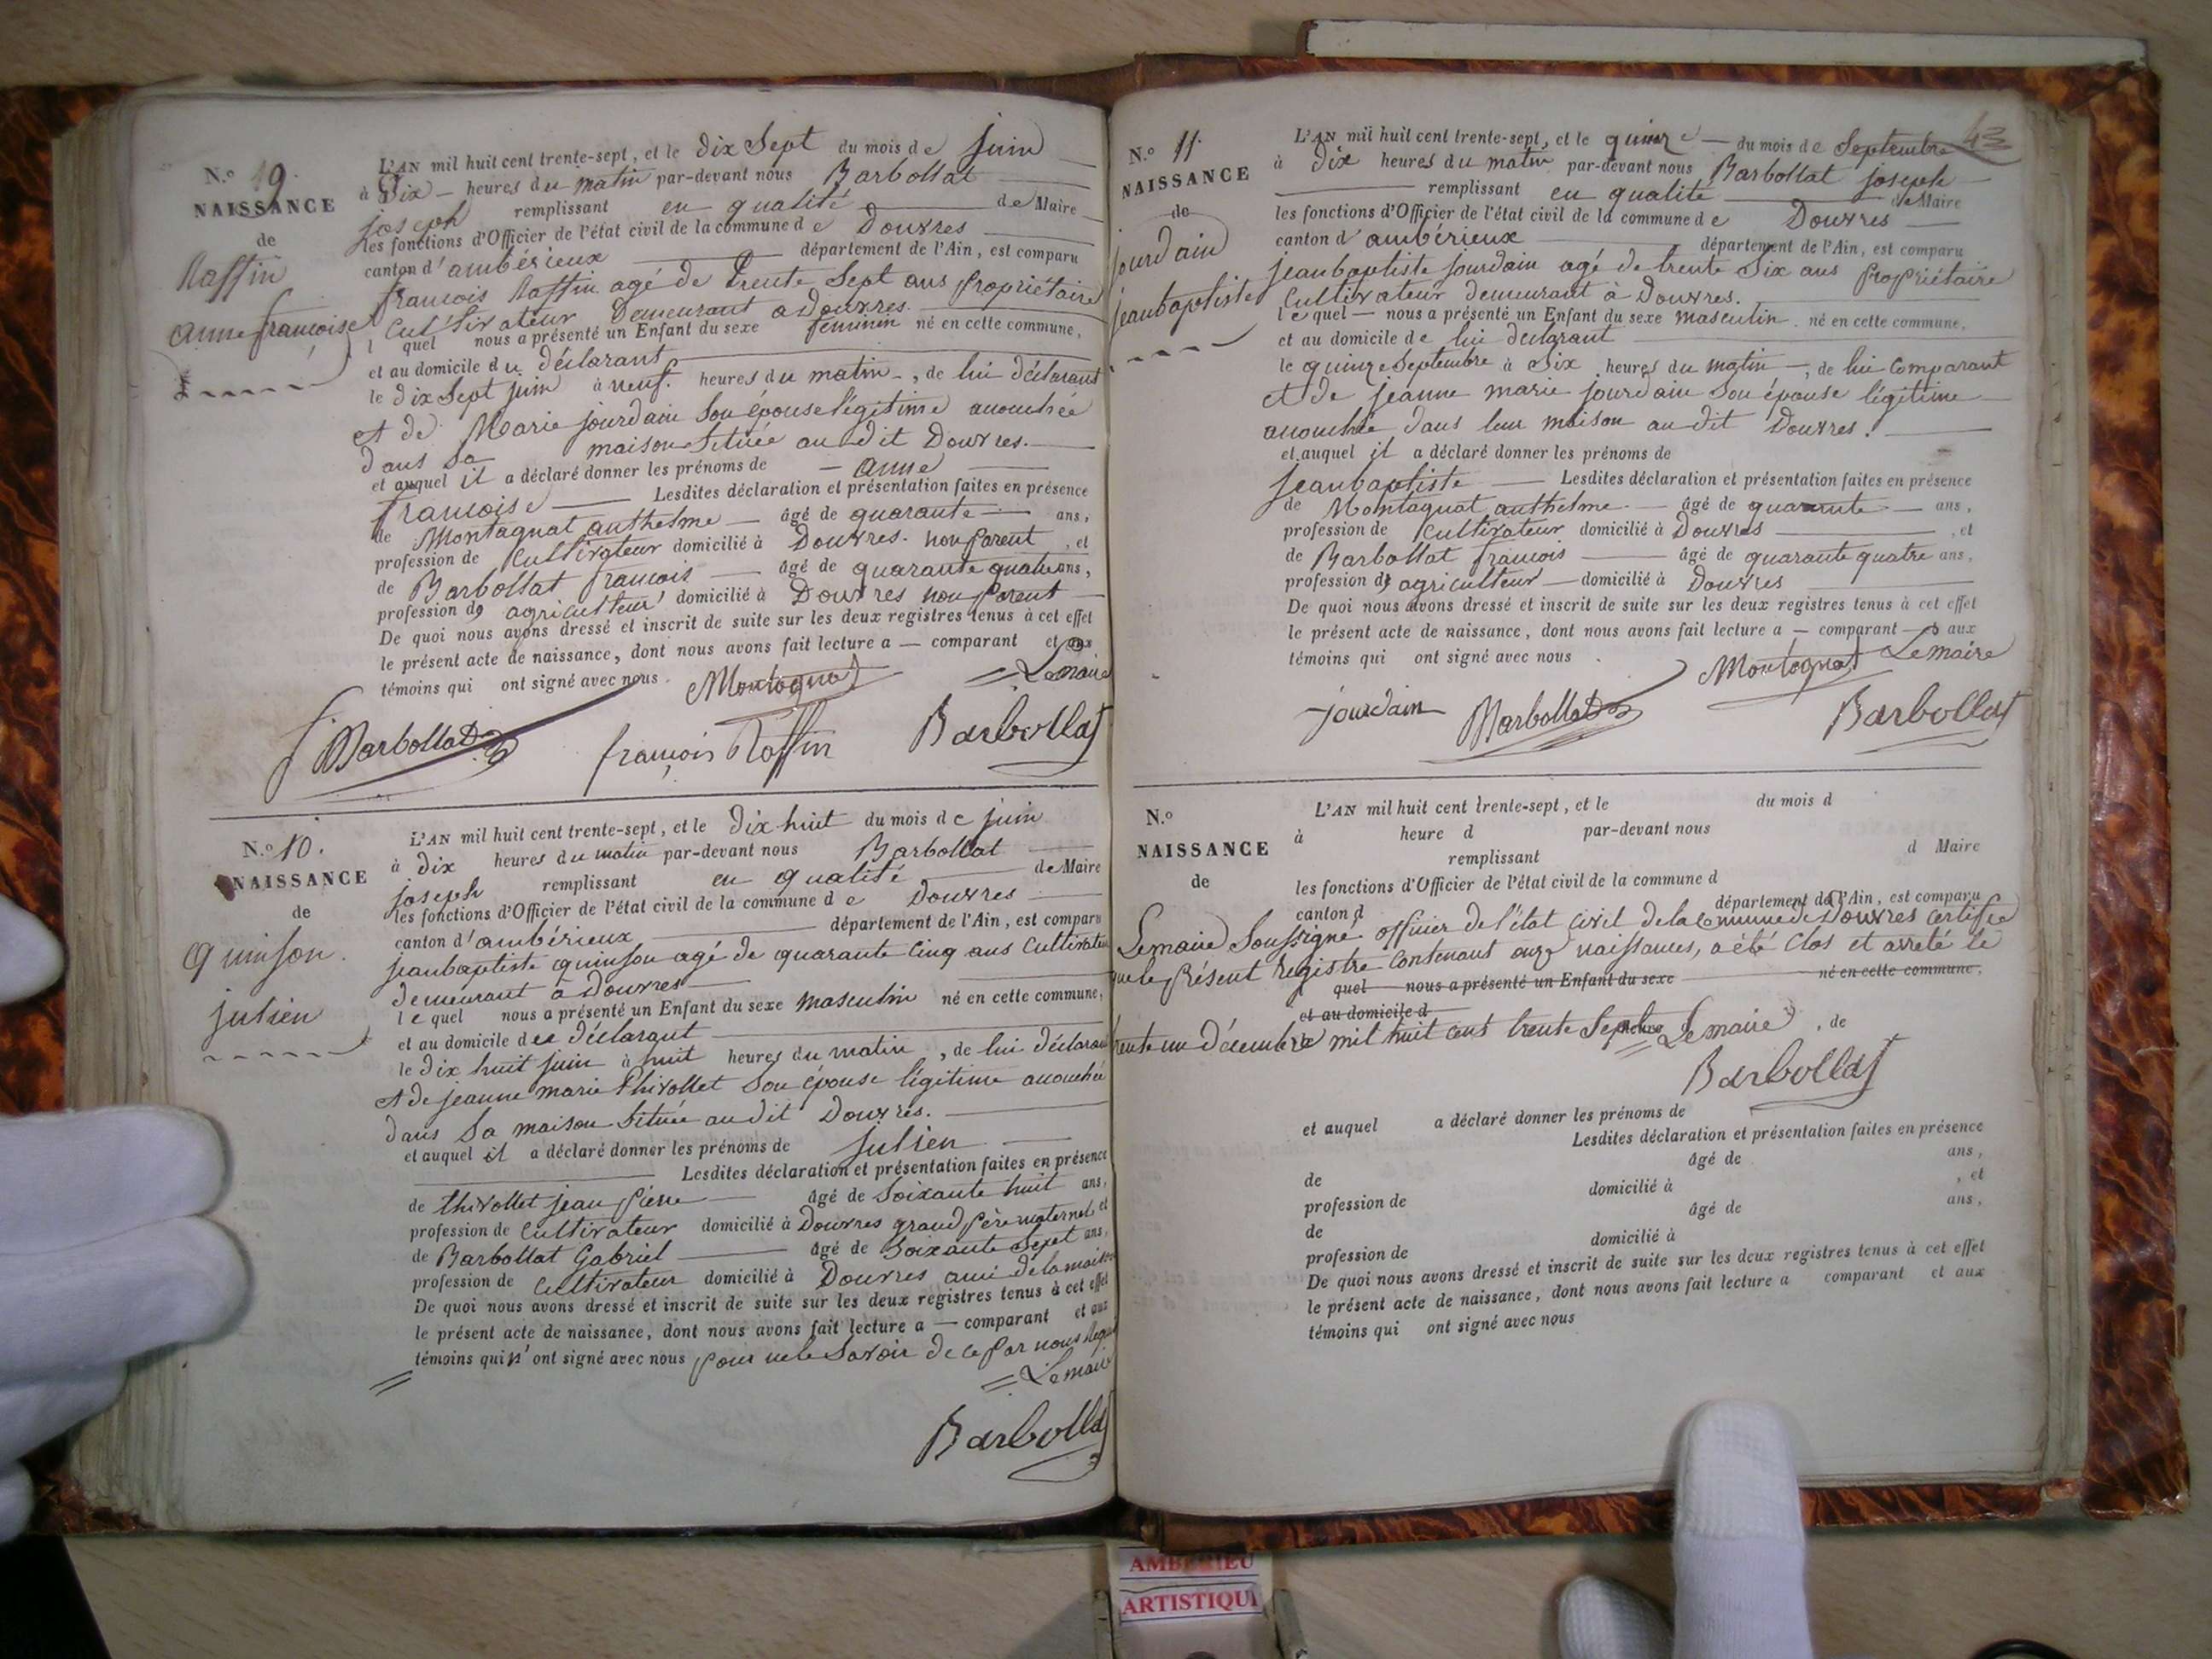 N.º 19.
NAISSANCE
de
Raffin
anne françoise
L'AN mil huit cent trente-sept, et le dix Sept du mois de juin
à Dix heures du matin par-devant nous Barbollat
joseph remplissant en qualité de Maire
les fonctions d'Officier de l'état civil de la commune de Douvres
canton d'ambérieux département de l'Ain, est comparu
françois Raffin agé de trente Sept ans propriétaire
Cultivateur Demeurant a douvres.
l quel nous a présenté un Enfant du sexe feminin né en cette commune,
et au domicile du déclarant
le dix Sept juin à neuf heures du matin, de lui déclarant
et de Marie jourdain Son épouse légitime accouchée
dans Sa maison Située au dit Douvres.
et auquel il a déclaré donner les prénoms de anne
françoise Lesdites déclaration et présentation faites en présence
de Montagnat anthelme âgé de quarante ans,
profession de Cultivateur domicilié à Douvres. non parent, et
de Barbollat françois âgé de quarante quatre ans,
profession d'agriculteur domicilié à Douvres non parent
De quoi nous avons dressé et inscrit de suite sur les deux registres tenus à cet effet
le présent acte de naissance, dont nous avons fait lecture a comparant et aux
témoins qui ont signé avec nous. Montagnat Le maire
Barbollat françois Raffin Barbollat
N.º 10.
NAISSANCE
de
quinson.
julien
L'AN mil huit cent trente-sept, et le dix huit du mois de juin
à dix heures du matin par-devant nous Barbollat
joseph remplissant en qualité de Maire
les fonctions d'Officier de l'état civil de la commune de Douvres
canton d'ambérieux département de l'Ain, est comparu
jeanbaptiste quinson agé de quarante Cinq ans Cultivateur
demeurant à douvres
le quel nous a présenté un Enfant du sexe masculin né en cette commune,
et au domicile du déclarant
le dix huit juin à huit heures du matin, de lui déclarant
et de jeanne marie thivollet Son épouse légitime accouchée
dans Sa maison Située au dit Douvres.
et auquel il a déclaré donner les prénoms de julien
Lesdites déclaration et présentation faites en présence
de thivollet jean pierre âgé de Soixante huit ans,
profession de Cultivateur domicilié à Douvres grand père maternel et
de Barbollat Gabriel âgé de Soixante Sept ans,
profession de Cultivateur domicilié à Douvres ami de la maison
De quoi nous avons dressé et inscrit de suite sur les deux registres tenus à cet effet
le présent acte de naissance, dont nous avons fait lecture a comparant et aux
témoins qui n'ont signé avec nous pour ne le Savoir de ce par nous
Le maire
Barbollat
43
N.º 11.
NAISSANCE
de
jourdain
jeanbaptiste
L'AN mil huit cent trente-sept, et le quinze du mois de Septembre
à dix heures du matin par-devant nous Barbollat joseph
remplissant en qualité de Maire
les fonctions d'Officier de l'état civil de la commune de Douvres
canton d'ambérieux département de l'Ain, est comparu
jeanbaptiste jourdain agé de trente Six ans propriétaire
Cultivateur demeurant à Douvres.
le quel nous a présenté un Enfant du sexe masculin né en cette commune,
et au domicile de lui déclarant
le quinze Septembre à Six heures du matin, de lui Comparant
et de jeanne marie jourdain Son épouse légitime
accouchée dans leur maison au dit Douvres.
et auquel il a déclaré donner les prénoms de
jeanbaptiste Lesdites déclaration et présentation faites en présence
de Montagnat anthelme âgé de quarante ans,
profession de Cultivateur domicilié à Douvres, et
de Barbollat françois âgé de quarante quatre ans,
profession d'agriculteur domicilié à Douvres
De quoi nous avons dressé et inscrit de suite sur les deux registres tenus à cet effet
le présent acte de naissance, dont nous avons fait lecture a comparant et aux
témoins qui ont signé avec nous. Montagnat Le maire
jourdain Barbollat Barbollat
N.º
NAISSANCE
de
L'AN mil huit cent trente-sept, et le du mois d
à heure d par-devant nous
remplissant d Maire
les fonctions d'Officier de l'état civil de la commune d
canton d département de l'Ain, est comparu
Lemaire Soussigné officier de l'état civil de la commune de Douvres certifie
que le présent registre Contenant onze naissances, a été Clos et arreté le
quel nous a présenté un Enfant du sexe né en cette commune,
et au domicile d
trente un décembre mil huit cent trente Sept Le maire , de
Barbollat
et auquel a déclaré donner les prénoms de
Lesdites déclaration et présentation faites en présence
de âgé de ans,
profession de domicilié à , et
de âgé de ans,
profession de domicilié à
De quoi nous avons dressé et inscrit de suite sur les deux registres tenus à cet effet
le présent acte de naissance, dont nous avons fait lecture a comparant et aux
témoins qui ont signé avec nous
AMBERIEU
ARTISTIQU